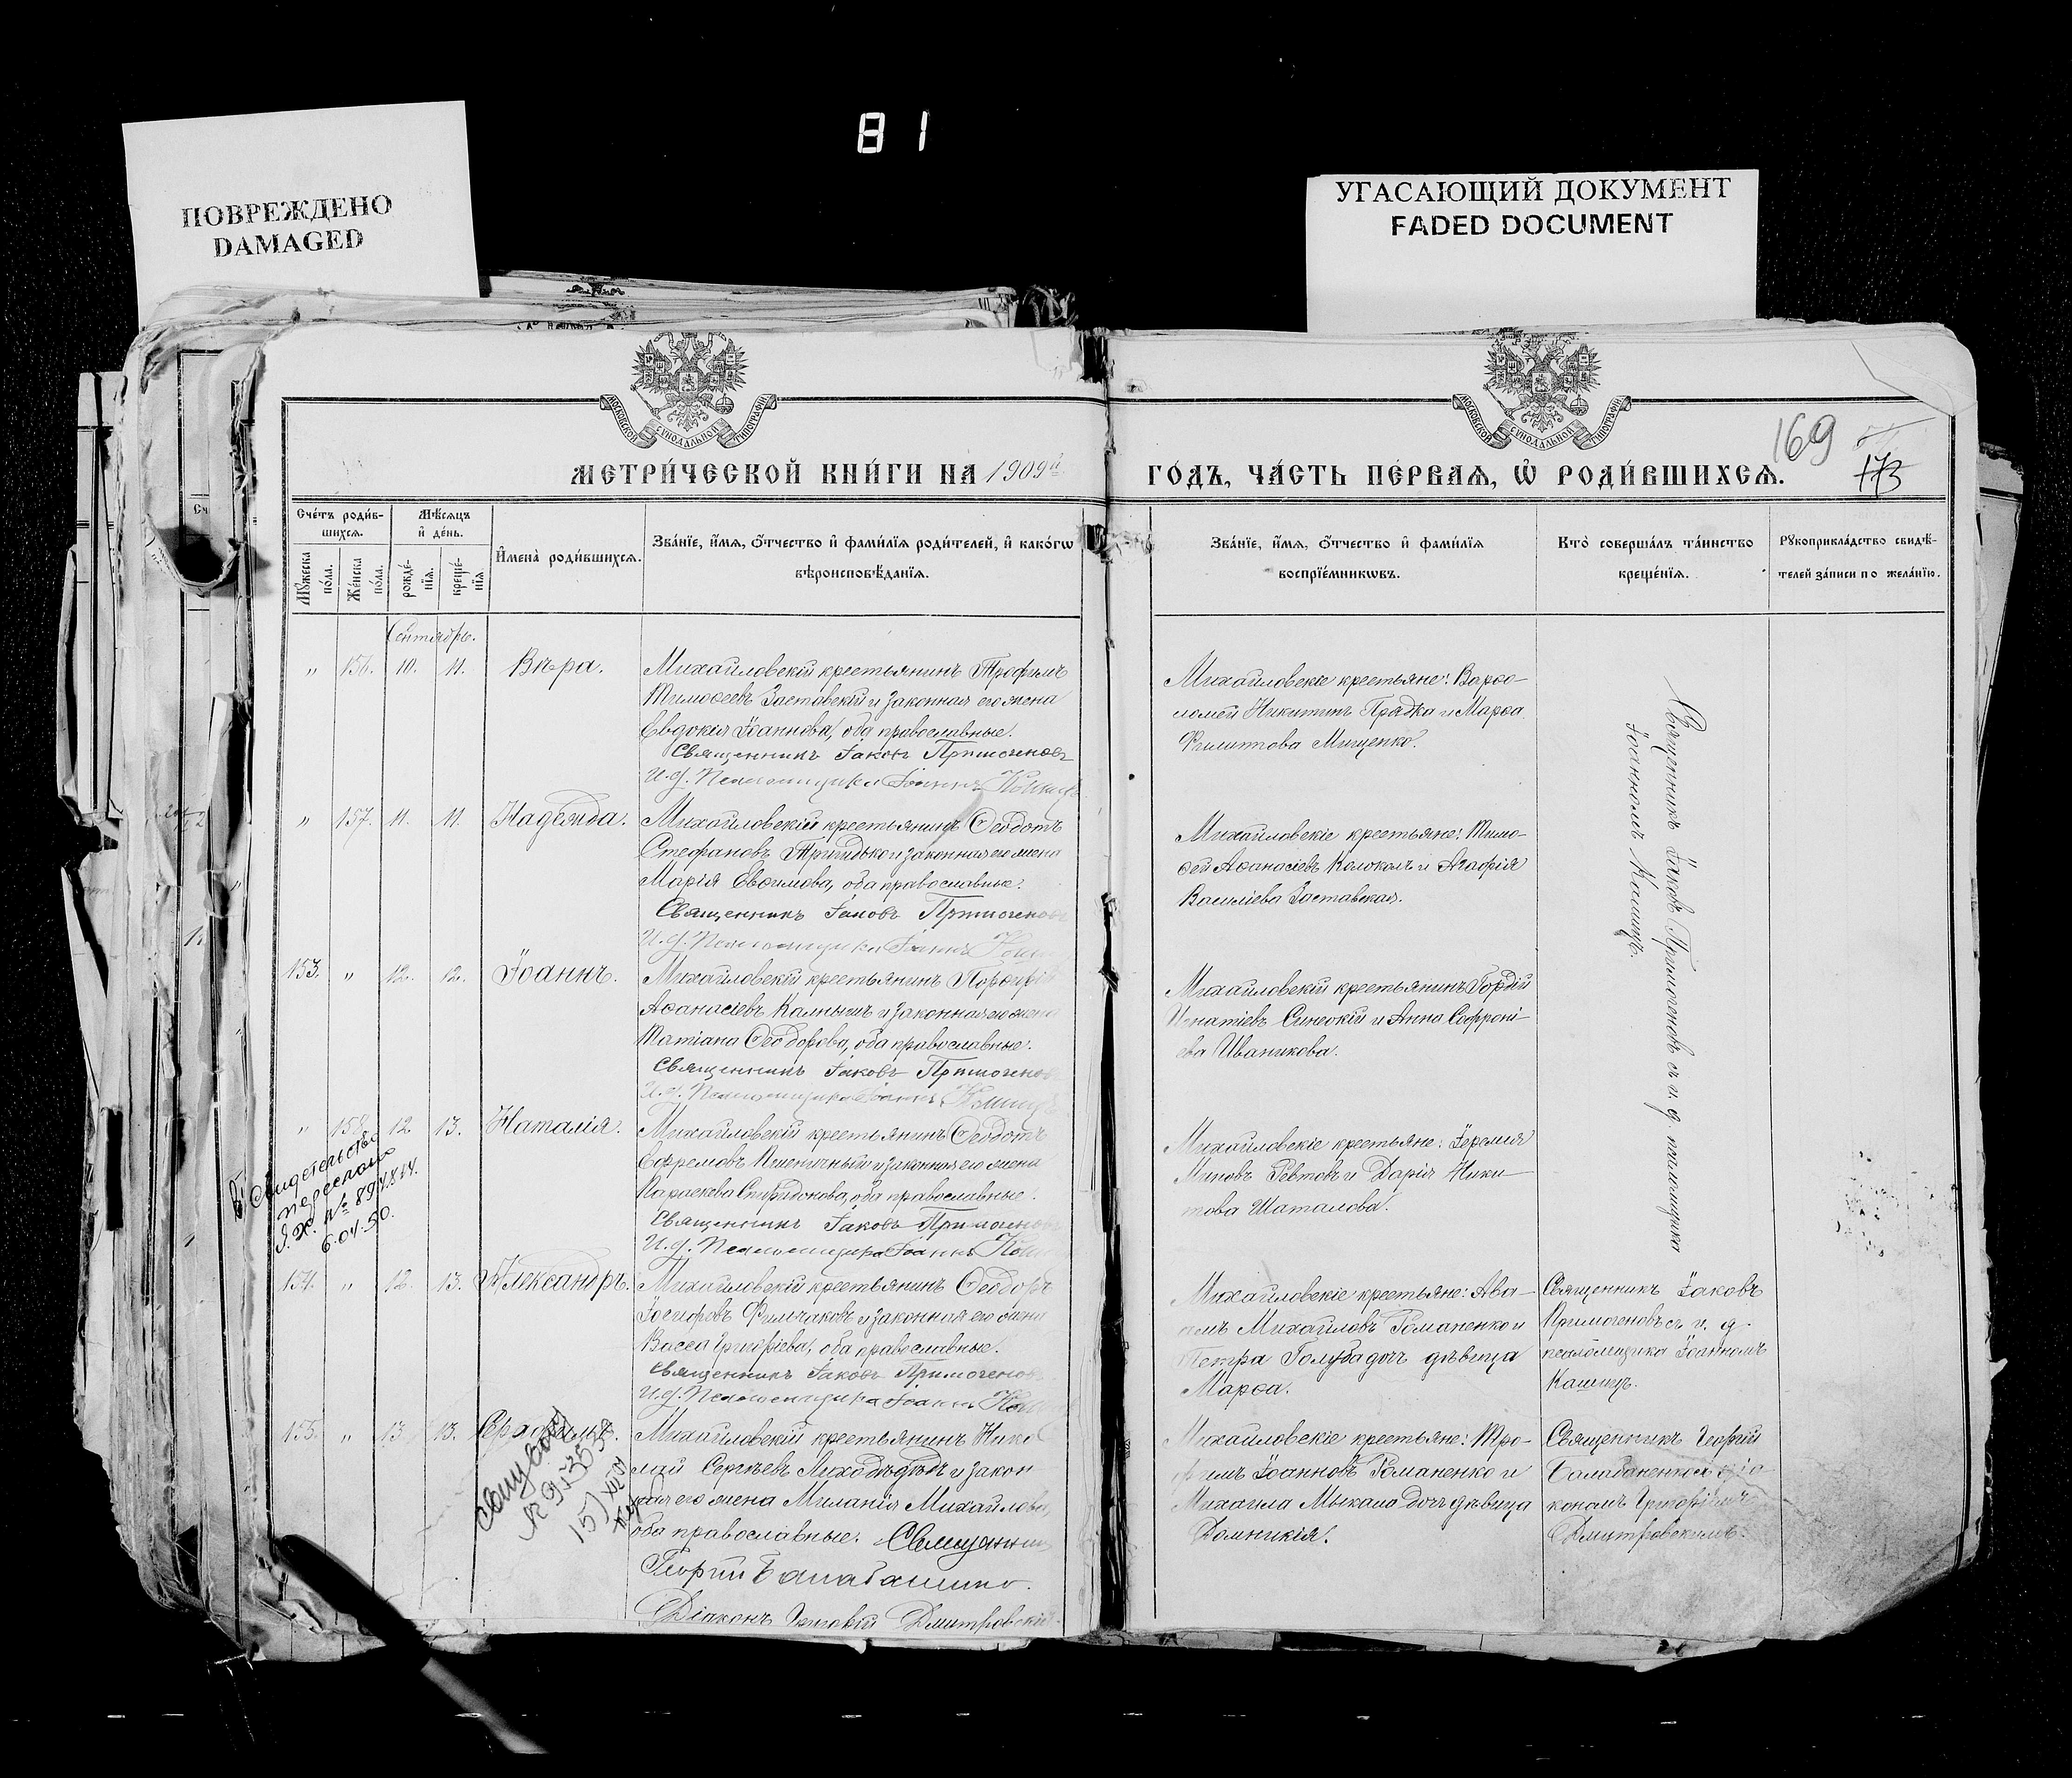 81
ПОВРЕЖДЕНО
DAMAGED
УГАСАЮЩИЙ ДОКУМЕНТ
FADED DOCUMENT
МОСКОВСКОЙ СѴНОДАЛЬНОЙ ТИПОГРАФІИ
МОСКОВСКОЙ СѴНОДАЛЬНОЙ ТИПОГРАФІИ
169
173
МЕТРИ́ЧЕСКОЙ КНИ́ГИ НА 1909й
ГО́ДЪ, ЧА́СТЬ ПЕ́РВАѦ, Ѡ҆ РОДИ́ВШИХСѦ.
Сче́тъ роди́в-
шихсѧ.
Мꙋ́жеска по́ла.
Же́нска по́ла.
Мѣ́сѧцъ
и҆ де́нь.
рожде́-
нїѧ.
креще́-
нїѧ
И҆мена̀ роди́вшихсѧ.
Зва́нїе, и҆́мѧ, ѻ҆́тчество и҆ фами́лїѧ роди́телей, и҆ како́гѡ
вѣроисповѣ́данїѧ.
Зва́нїе, и҆́мѧ, ѻ҆́тчество и҆ фами́лїѧ
воспрїе́мникѡвъ.
Кто̀ соверша́лъ та́инство
креще́нїѧ.
Рꙋкоприкла́дство свидѣ́-
телей за́писи по жела́нїю.
Сентябрь.
" 156. 10. 11. Вѣра.
Михайловскій крестьянинъ Трофимъ
Тимоѳеевъ Заставскій и законная его жена
Евдокія Іоаннова, оба православные.
Священникъ Іаковъ Примогеновъ
И.д. Псаломщика Іоаннъ
Михайловскіе крестьяне: Варѳо-
ломей Никитинъ Прядка и Марѳа
Филиппова Мищенко.
Священникъ Іаковъ Примогеновъ съ и. д. псаломщика
Іоанномъ Кашицъ.
" 157. 11. 11. Надежда.
Михайловскій крестьянинъ Ѳеодотъ
Стефановъ и законная его жена
Марія Евѳимова, оба православные.
Священникъ Іаковъ Примогеновъ
И.д. Псаломщика Іоаннъ
Михайловскіе крестьяне: Тимо-
ѳей Аѳанасіевъ Колоколъ и Агафія
Василіева Заставская.
153. " 12. 12. Іоаннъ.
Михайловскій крестьянинъ Порфирій
Аѳанасіевъ и законная его жена
Татіана Ѳеодорова, оба православные.
Священникъ Іаковъ Примогеновъ
И.д. Псаломщика Іоаннъ
Михайловскій крестьянинъ Гордій
Игнатіевъ Синеокій и Анна Софроні-
ева Иваникова.
" 158. 12 13. Наталія.
Михайловскій крестьянинъ Ѳеодотъ
Ефремовъ Пшеничный и законная его жена
Параскева Спиридонова, оба православные.
Священникъ Іаковъ Примогеновъ
И.д. Псаломщика Іоаннъ
Михайловскіе крестьяне: Іеремія
Миновъ Ревтовъ и Дарія Ники-
това Шаталова.
Свидетельство
переслано
№ 894814.
6.04.50.
154. " 12. 13. Александръ.
Михайловскій крестьянинъ Ѳеодоръ
Іосифовъ Филчаковъ и законная его жена
Васса Григоріева, оба православные.
Священникъ Іаковъ Примогеновъ
И.д. Псаломщика Іоаннъ
Михайловскіе крестьяне: Ава-
Михайловъ Романенко и
Петра Голуба дочь дѣвица
Марѳа.
Священникъ Іаковъ
Примогеновъ съ и. д.
псаломщика Іоанномъ
Кашицъ.
155. " 13 13. Серафимъ.
Михайловскій крестьянинъ Нико-
лай Сергѣевъ Лиходѣдъ и закон-
ная его жена Миланія Михайлова,
оба православные. Священникъ
Георгій Балабаненко.
Діаконъ Григорій Дмитровскій.
Михайловскіе крестьяне: Тро-
фимъ Іоанновъ Романенко и
Михаила дочь дѣвица
Домникія.
Священникъ Георгій
Балабаненко съ діа-
кономъ Григоріемъ
Дмитровскимъ.